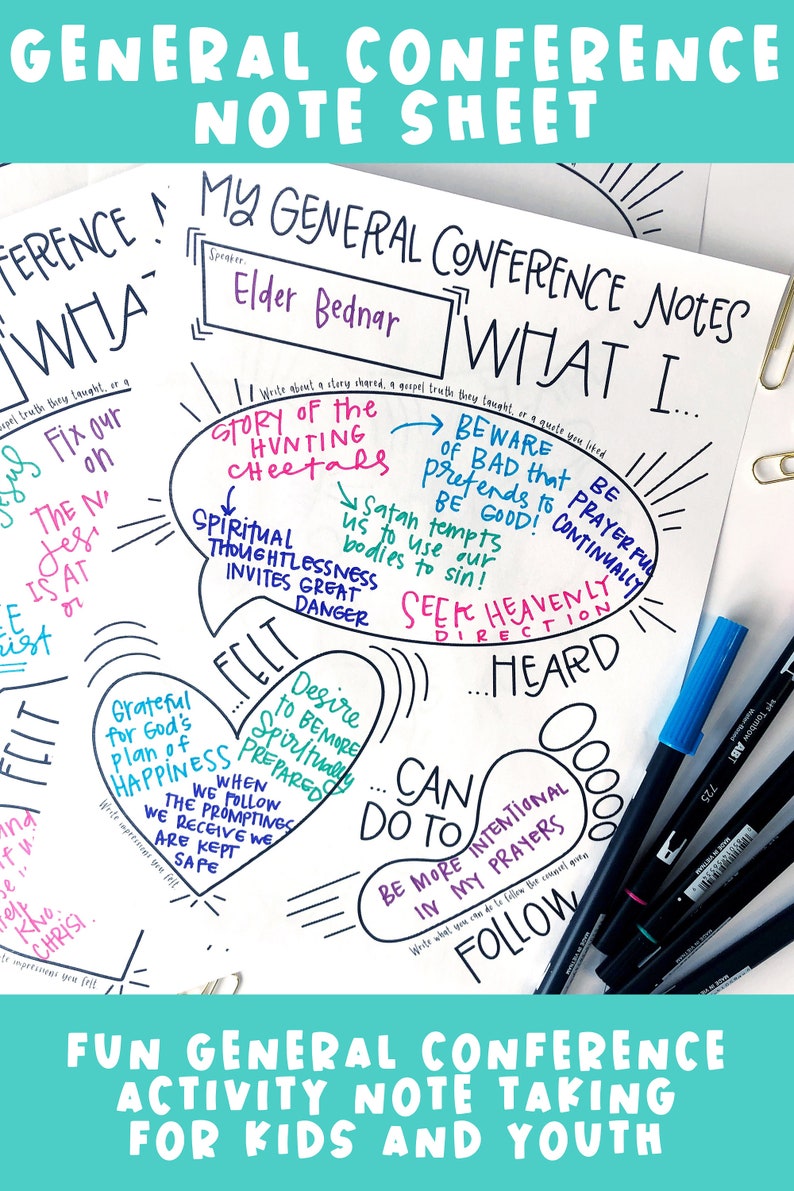 GENERAL CONFERENCE
NOTE SHEET
MY GENERAL CONFERENCE NOTES
Speaker.
Elder Bednar
WHAT I...
Write about a story shared, a gospel truth they taught, or a quote you liked
STORY OF the
HUNTING
CHEETAHS
BEWARE
OF BAD that
pretends to
BE GOOD!
BE
PRAYERFUL
CONTINUALLY
Satan tempts
us to use our
bodies to sin!
SPIRITUAL
THOUGHTLESSNESS
INVITES GREAT
DANGER
SEEK HEAVENLY
DIRECTION
...HEARD
...FELT
Grateful
for God's
plan of
HAPPINESS
Desire
to BE MORE
Spiritually
PREPARED
WHEN
WE FOLLOW
THE PROMPTINGS
WE RECEIVE WE
ARE KEPT
SAFE
Write impressions you felt
...CAN
DO TO
BE MORE INTENTIONAL
IN MY PRAYERS
Write what you can do to follow the counsel given
FOLLOW
FERENCE
WHA
gospel truth they taught, or a
Fix our
on
THE
IS AT
FELT
impressions you felt
Tombow ABT
Water-Based
725
MADE IN VIETNAM
MADE IN VIETNAM
MADE IN VIETNAM
FUN GENERAL CONFERENCE
ACTIVITY NOTE TAKING
FOR KIDS AND YOUTH